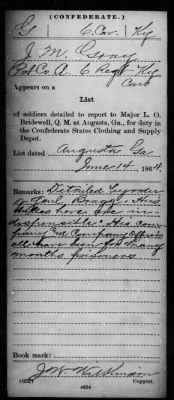 (CONFEDERATE.)
G 6 Cav. Ky
J. M. Gray
Pvt Co A. 6 Regt Ky
Cav
Appears on a
List
of soldiers detailed to report to Major L. O.
Bridewell, Q. M. at Augusta, Ga., for duty in
the Confederate States Clothing and Supply
Depot.
List dated Augusta Ga
June 14 1864.
Remarks: Detailed by order
of Genl Bragg. His
here are in-
dispensible. His com-
pany and Company Officers
all have been for many
months prisoners
Book mark:
J W Wilkinson
(632) Copyist.